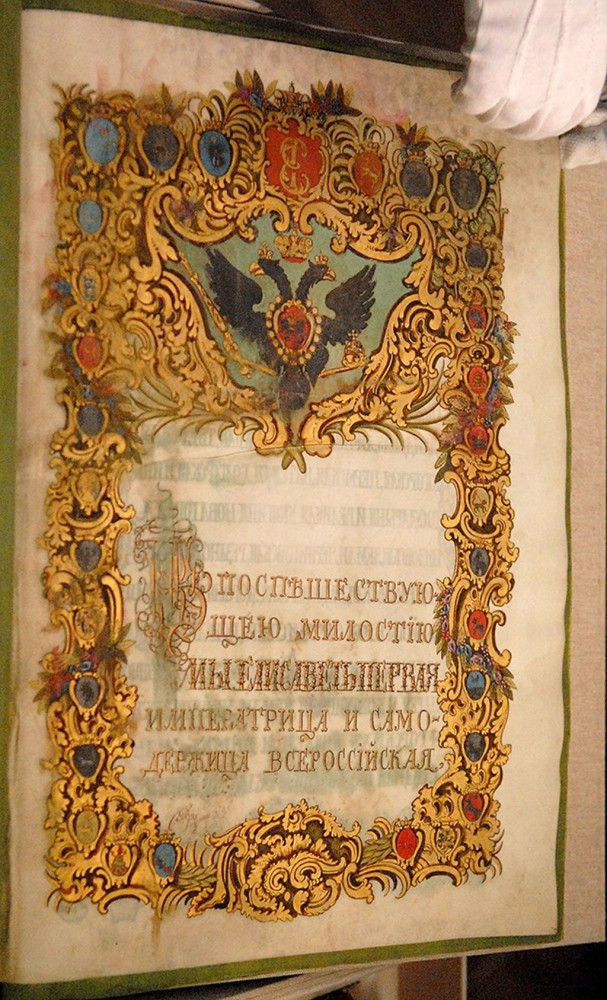 ПОСПѢШЕСТВУЮ-
ЩЕЮ МИЛОСТІЮ
МЫ ЕЛИСАВЕТЪ ПЕРВАЯ
ИМПЕРАТРИЦА И САМО-
ДЕРЖИЦА ВСЕРОССІЙСКАЯ,